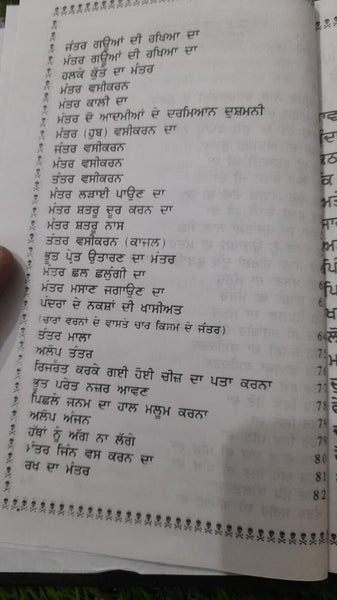 ਜੰਤਰ ਗਊਆਂ ਦੀ ਰਖਿਆ ਦਾ
ਮੰਤਰ ਗਊਆਂ ਦੀ ਰਖਿਆ ਦਾ
ਹਲਕੇ ਕੁੱਤੇ ਦਾ ਮੰਤਰ
ਮੰਤਰ ਵਸੀਕਰਨ
ਮੰਤਰ ਕਾਲੀ ਦਾ
ਮੰਤਰ ਦੋ ਆਦਮੀਆਂ ਦੇ ਦਰਮਿਆਨ ਦੁਸ਼ਮਨੀ
ਮੰਤਰ (ਹੁਬ) ਵਸੀਕਰਨ ਦਾ
ਜੰਤਰ ਵਸੀਕਰਨ
ਮੰਤਰ ਵਸੀਕਰਨ
ਤੰਤਰ ਵਸੀਕਰਨ
ਮੰਤਰ ਲੜਾਈ ਪਾਉਣ ਦਾ
ਮੰਤਰ ਸ਼ਤਰੂ ਦੂਰ ਕਰਨ ਦਾ
ਮੰਤਰ ਸ਼ਤਰੂ ਨਾਸ
ਤੰਤਰ ਵਸੀਕਰਨ (ਕਾਜਲ)
ਭੂਤ ਪ੍ਰੇਤ ਉਤਾਰਣ ਦਾ ਮੰਤਰ
ਮੰਤਰ ਛਲ ਛਲੁੰਗੀ ਦਾ
ਮੰਤਰ ਮਸਾਣ ਜਗਾਉਣ ਦਾ
ਪੰਦਰਾ ਦੇ ਨਕਸ਼ਾਂ ਦੀ ਖਾਸੀਅਤ
(ਚਾਰਾਂ ਵਰਨਾਂ ਦੇ ਵਾਸਤੇ ਚਾਰ ਕਿਸਮ ਦੇ ਜੰਤਰ)
ਤੰਤਰ ਮਾਲਾ
ਅਲੋਪ ਤੰਤਰ
ਰਿਜਰੇਤ ਕਰਕੇ ਗਈ ਹੋਈ ਚੀਜ਼ ਦਾ ਪਤਾ ਕਰਨਾ
ਭੂਤ ਪਰੇਤ ਨਜ਼ਰ ਆਵਣ 77
ਪਿਛਲੇ ਜਨਮ ਦਾ ਹਾਲ ਮਲੂਮ ਕਰਨਾ 78
ਅਲੋਪ ਅੰਜਨ 79
ਹੱਥਾਂ ਨੂੰ ਅੱਗ ਨਾ ਲੱਗੇ 79
ਮੰਤਰ ਜਿੰਨ ਵਸ ਕਰਨ ਦਾ 80
ਰਖ ਦਾ ਮੰਤਰ 81
82